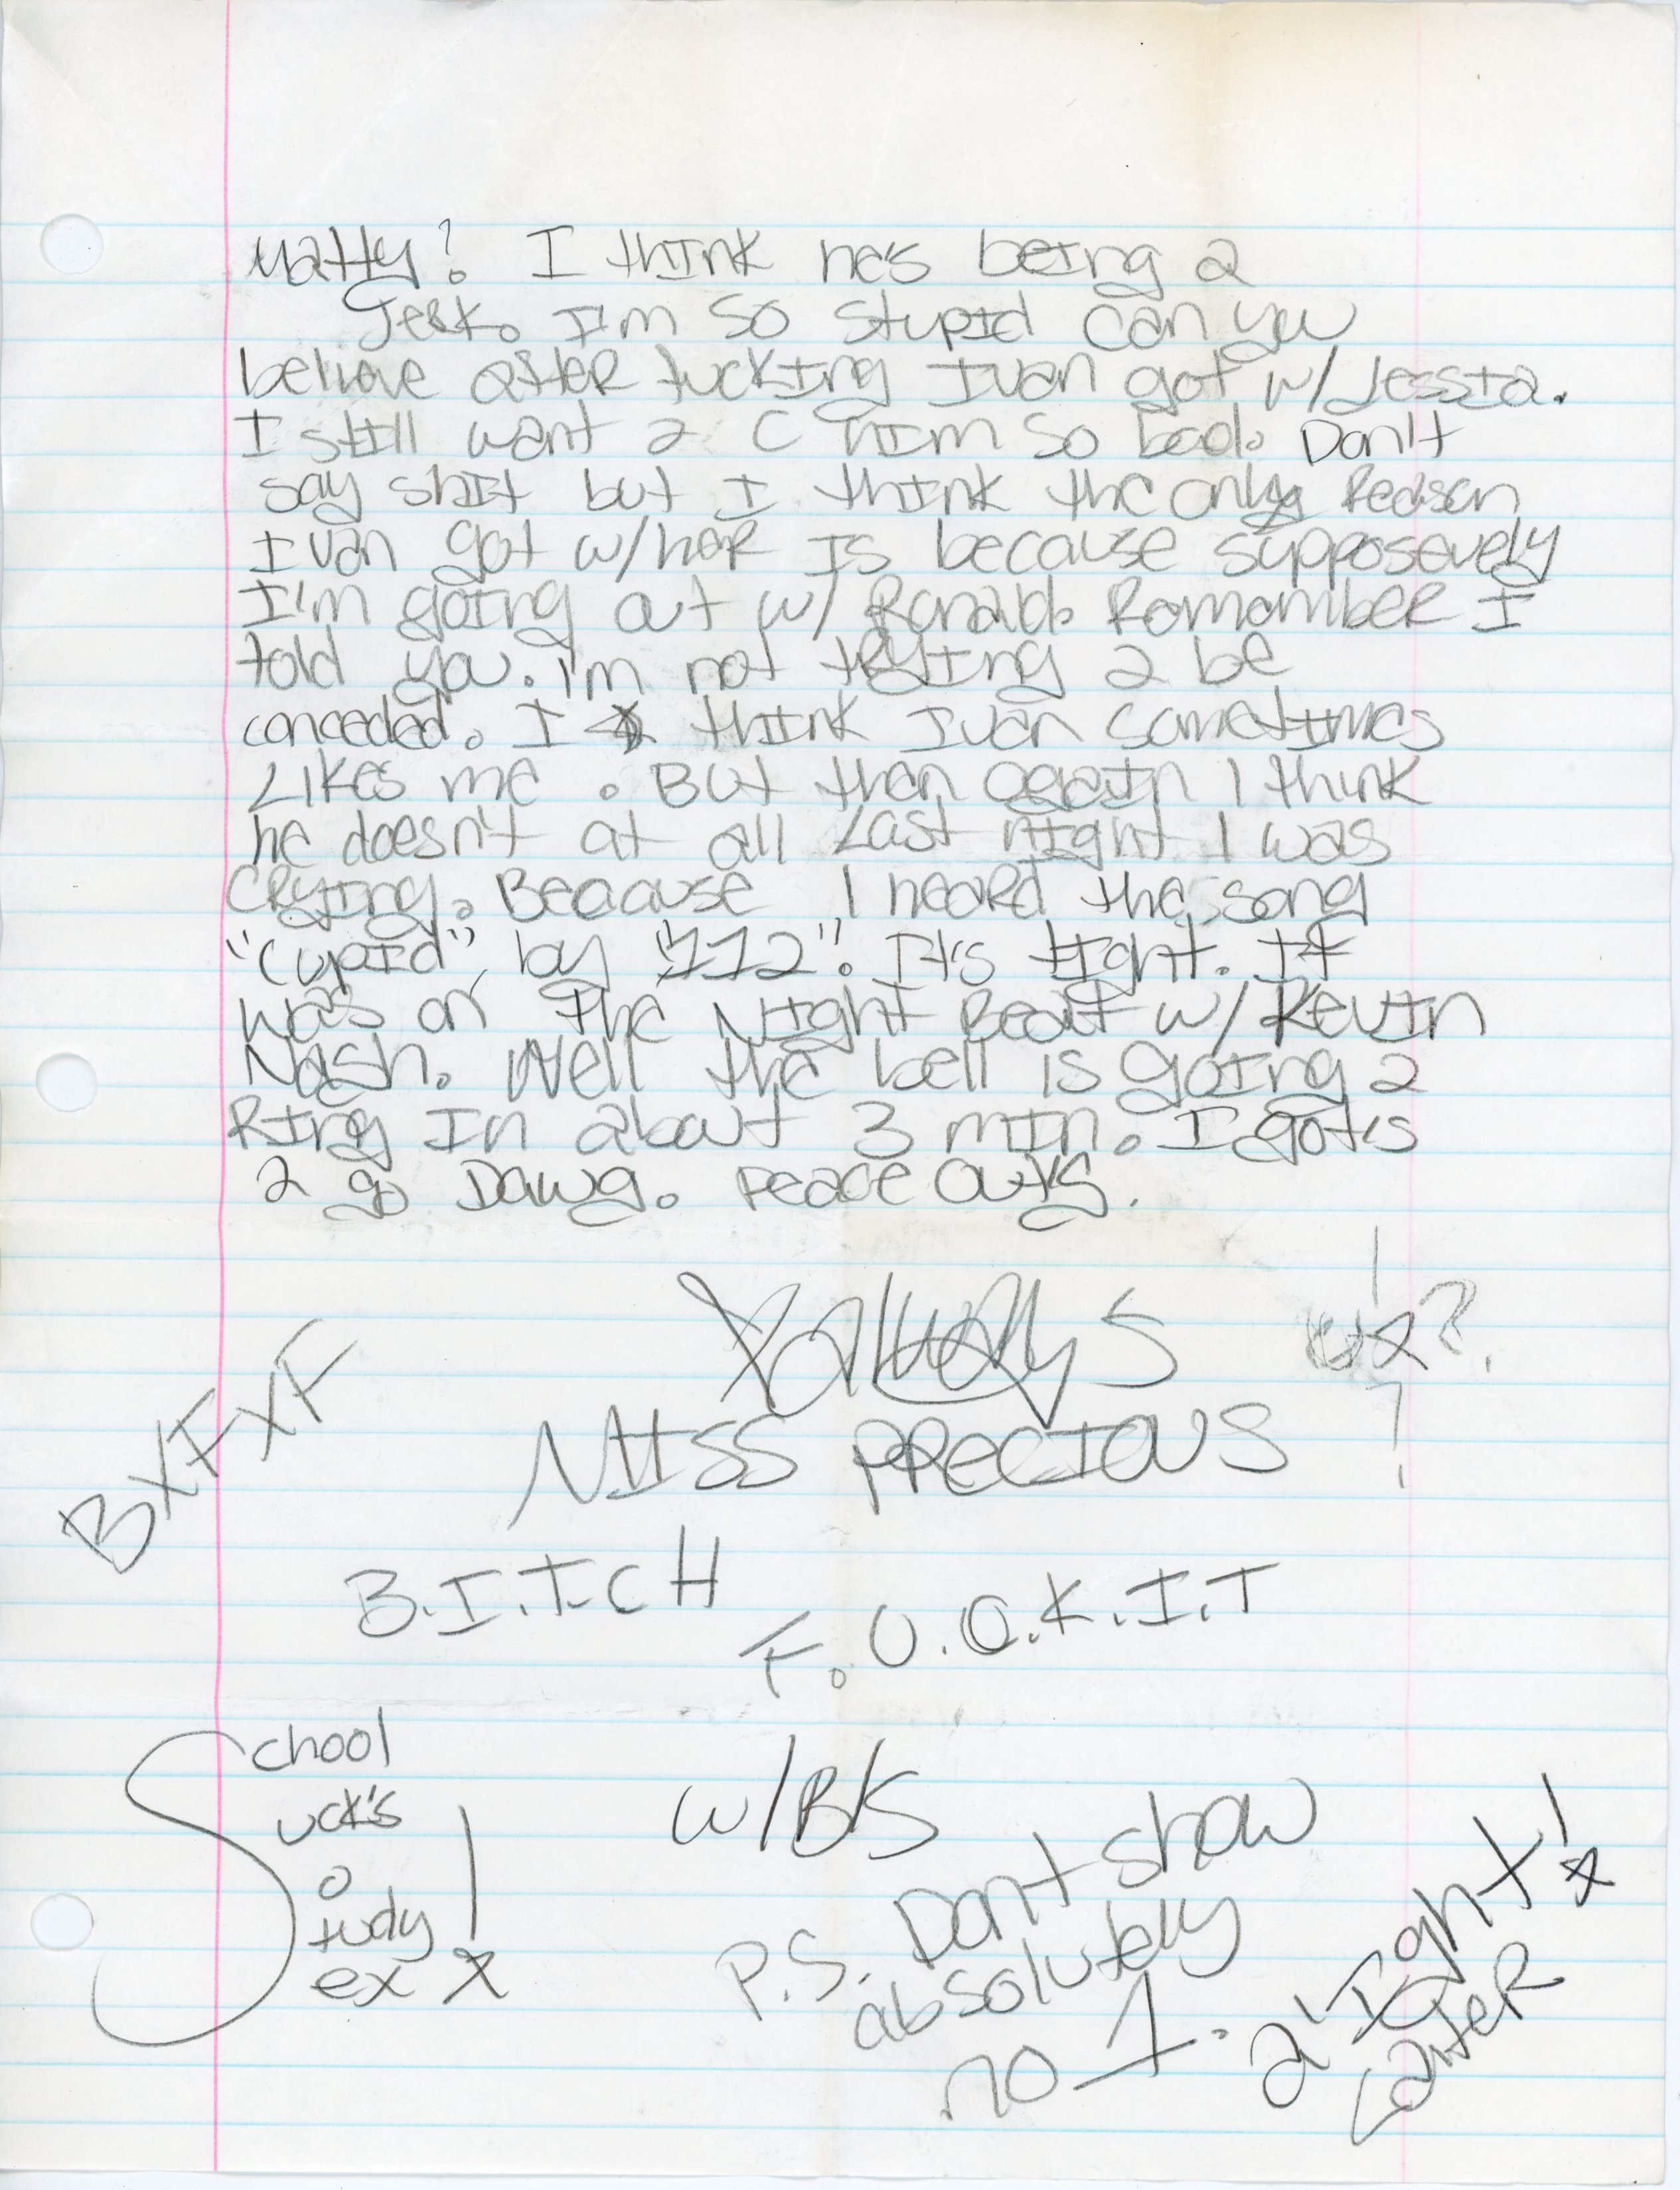 Matty? I think he's being a
Jerk. I'm so stupid can you
believe after fucking Ivan got w/ Jessia.
I still want 2 C him so bad. Don't
say shit but I think the only Reason
Ivan got w/ her Is because supposevely
I'm going out w/ Ronald. Romomber I
told you. I'm not trying 2 be
conceded. I think Ivan sometimes
Likes me. But then again I think
he doesn't at all Last night I was
Crying. Beacause I heard the song
"Cupid" by "112". It's tight. It
was on The Night Beat w/ Kevin
Nash. Well the bell is going 2
Ring In about 3 min. I got's
2 go Dawg. Peace Out's.
Always
MISS PRECIOUS
BXFXF
B.I.T.CH
F.U.C.K.I.T
School
uck's
o
tudy
ex !
w/B/S
P.S. Don't show
absolutely
no 1.
a'Ight!
Later